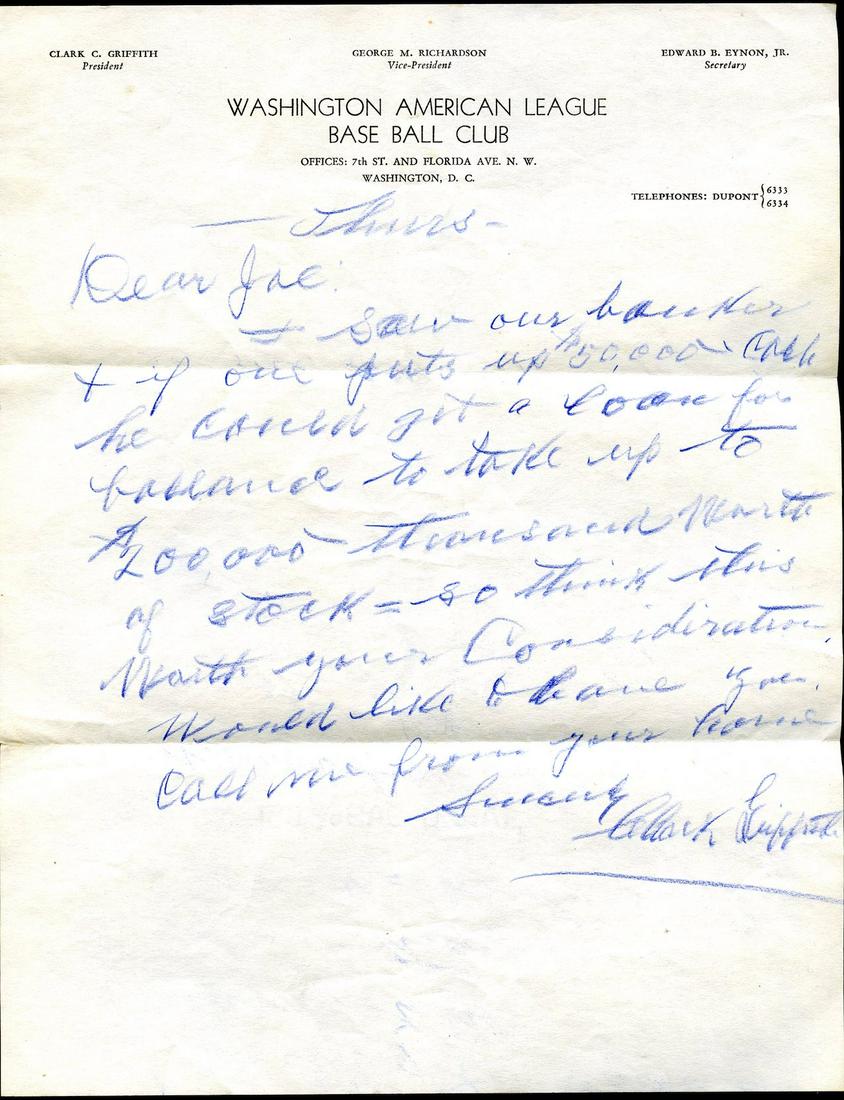 CLARK C. GRIFFITH
President
GEORGE M. RICHARDSON
Vice-President
EDWARD B. EYNON, JR.
Secretary
WASHINGTON AMERICAN LEAGUE
BASE BALL CLUB
OFFICES: 7th ST. AND FLORIDA AVE. N. W.
WASHINGTON, D. C.
TELEPHONES: DUPONT { 6333
6334
— Thurs-
Dear Joe:
I saw our banker
+ if one puts up $50,000 Cash
he could get a loan for
ballance to take up to
$200,000 thousand Worth
of stock = so think this
Worth your Consideration.
Would like to have you.
Call me from your home
Sincerely
Clark Griffith